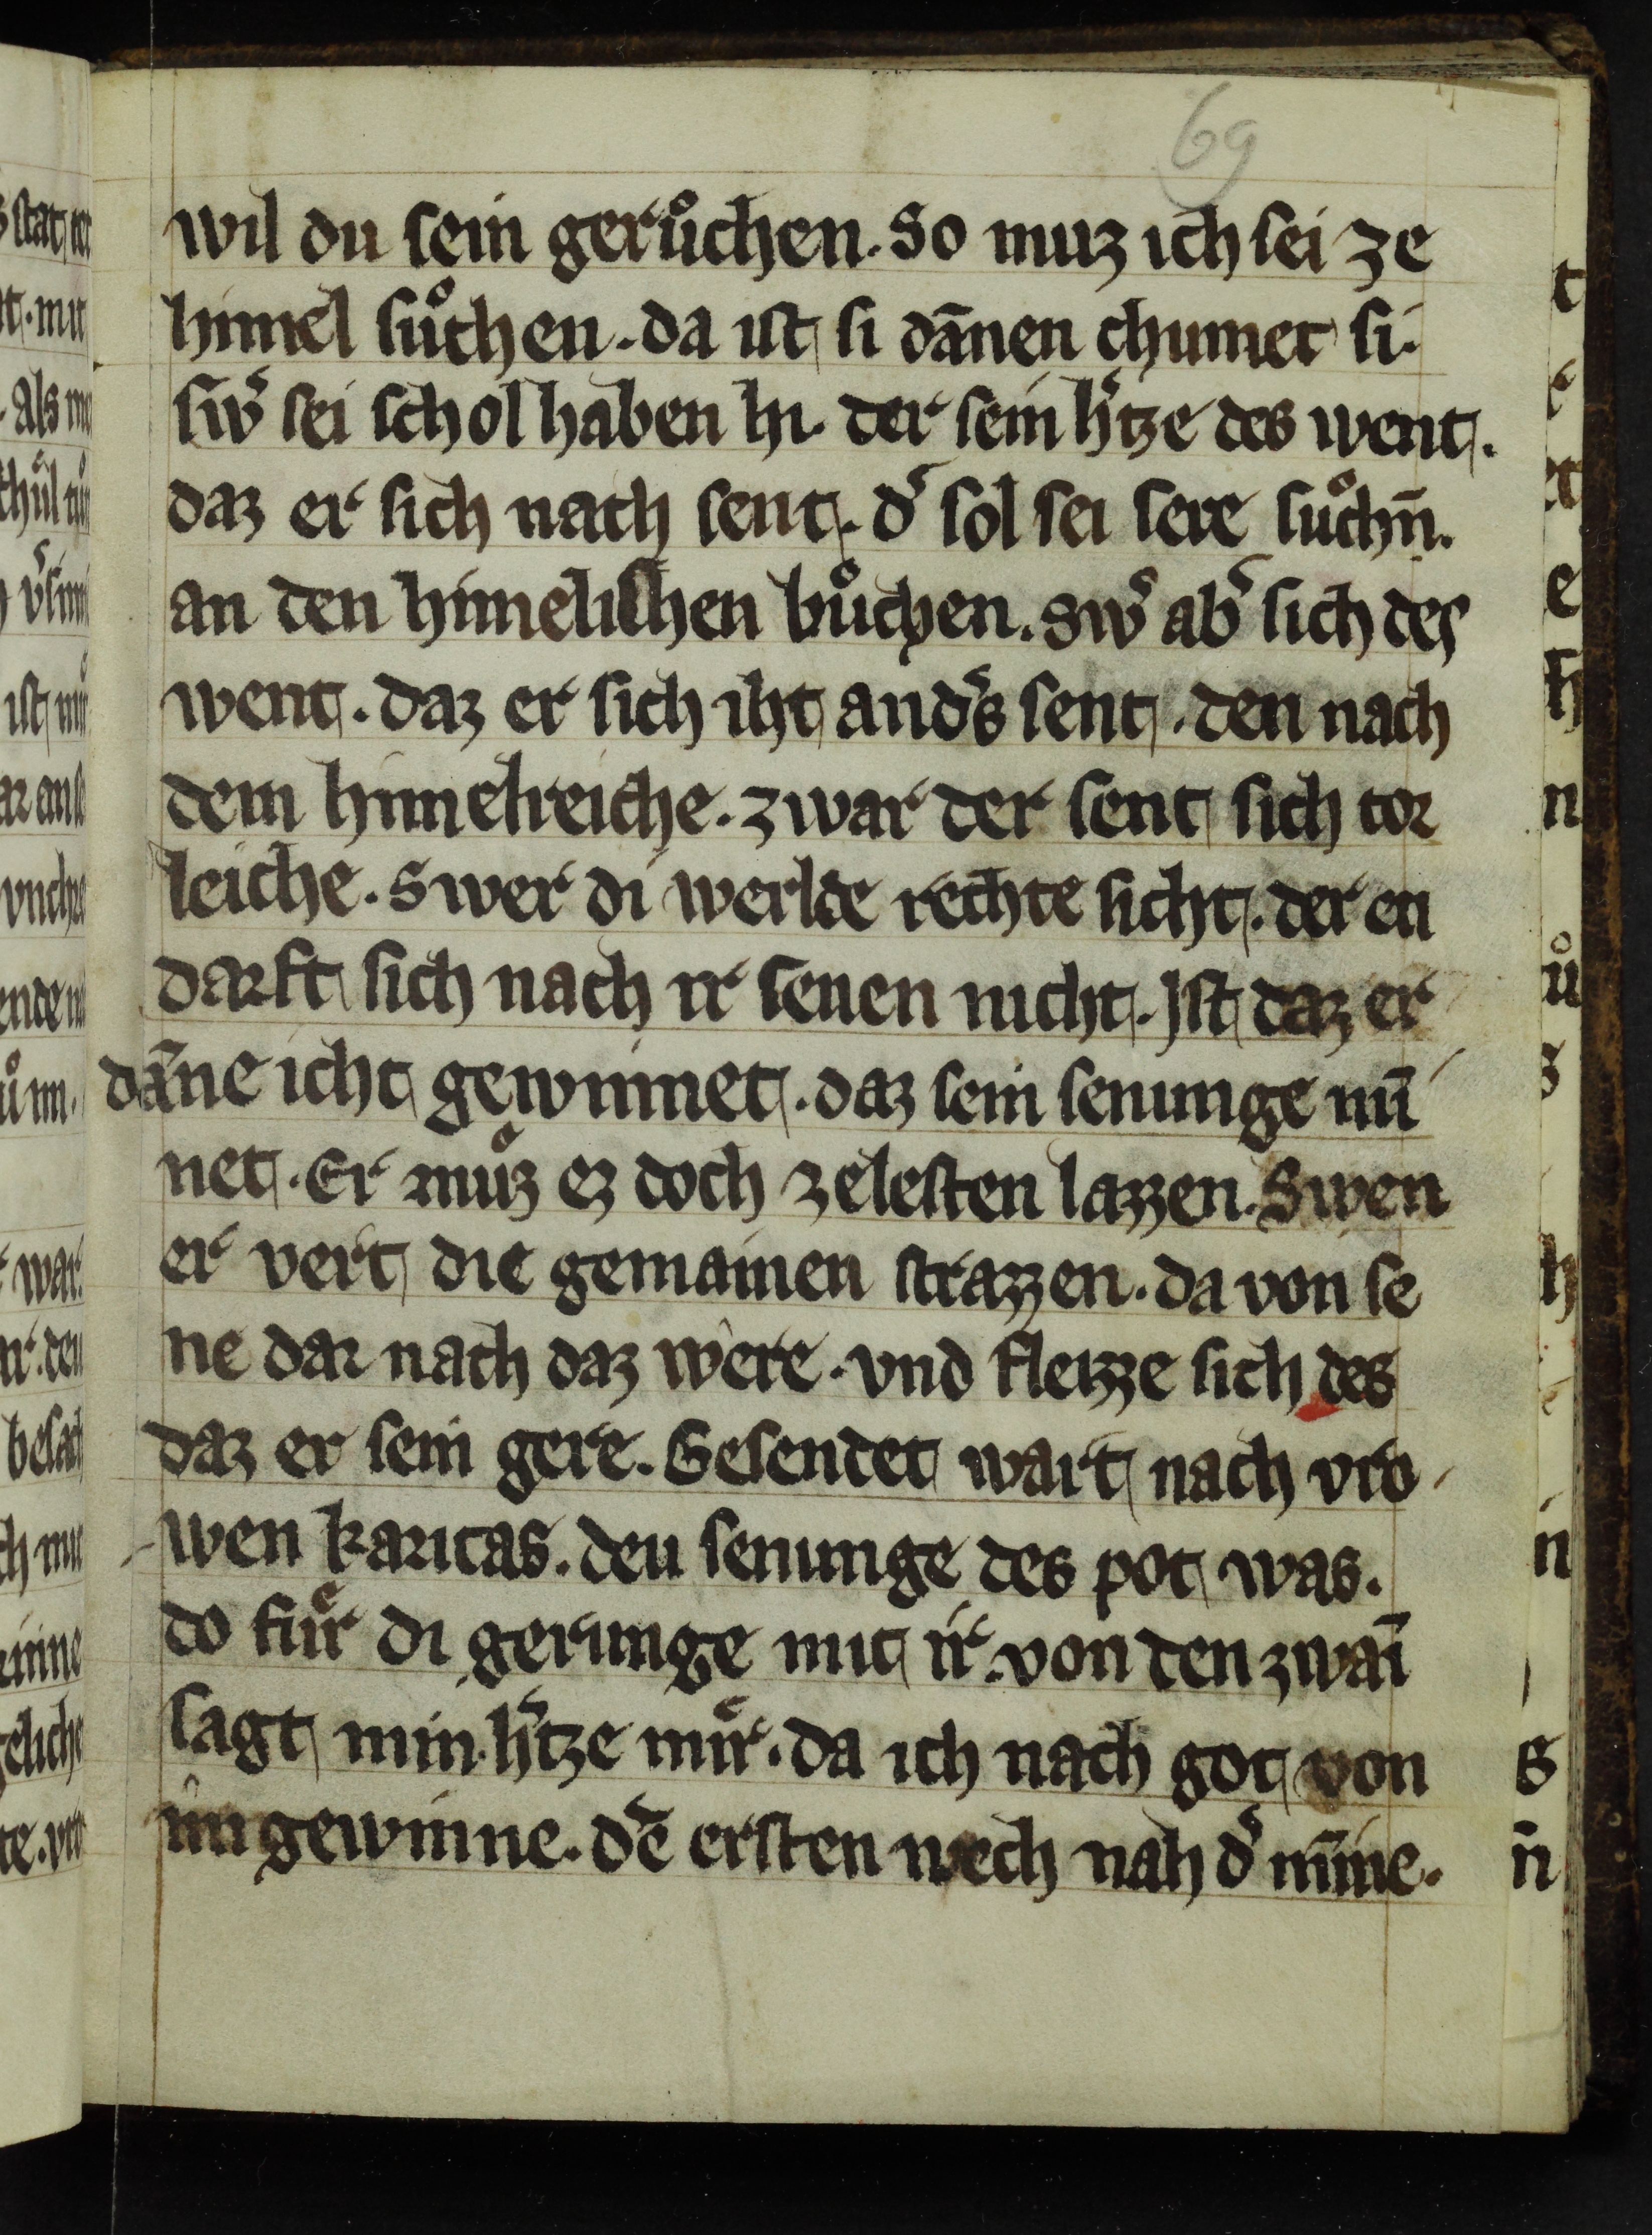 69
wil du sein gerůchen. So muz ich sei ze
himel sůchen. da ist si dānen chumet si.
sw̉ sei schol haben hi. der sein h̉tze des went.
daz er sich nach sent. d̉ sol sei sere sůchn̄.
an den himelischen bůchen. Sw̉ ab̉ sich des
went. daz er sich iht and̉s sent. den nach
dem himelreiche. zwar der sent sich tor
leiche. Swer di werlde rechte sicht. der en
darft sich nach ir senen nicht. Jst daz er
dāne icht gewinnet. daz sein senunge mı̄
net. Er můz ez doch zelesten lazzen. Swen
er vert die gemainen strazzen. da von se
ne dar nach daz wêre. vnd fleizze sich des
daz er sein gere. Gesendet wart nach vro
wen karitas. deu senunge des pot was.
do fůr di gerunge mit ir. von den zwaı̄
sagt min h̉tze mir. da ich nach got von
im gewinne. dē ersten wech nah d̉ mı̄ne.